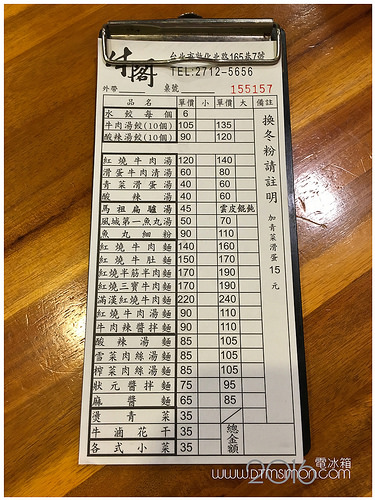 竹閣
台北市敦化北路165巷7號
TEL:2712-5656
外帶 桌號 155157
品名 單價 小 單價 大 備註
水餃每個 6
牛肉湯餃(10個) 105 135
酸辣湯餃(10個) 90 120
紅燒牛肉湯 120 140
滑蛋牛肉清湯 60 80
青菜滑蛋湯 40 60
酸辣湯 40 60
馬祖扁艫湯 45 雲皮餛飩
風城第一魚丸湯 50 70
魚丸細粉 90 110
紅燒牛肉麵 140 160
紅燒牛肚麵 150 170
紅燒半筋半肉麵 170 190
紅燒三寶牛肉麵 170 190
滿漢紅燒牛肉麵 220 240
紅燒牛肉湯麵 90 110
牛肉辣醬拌麵 90 110
酸辣湯麵 85 105
雪菜肉絲湯麵 85 105
榨菜肉絲湯麵 85 105
狀元醬拌麵 75 95
麻醬麵 65 85
燙青菜 35
牛滷花干 35
各式小菜 35
總金額
換冬粉請註明
加青菜滑蛋15元
2016電冰箱
www.prmsimon.com